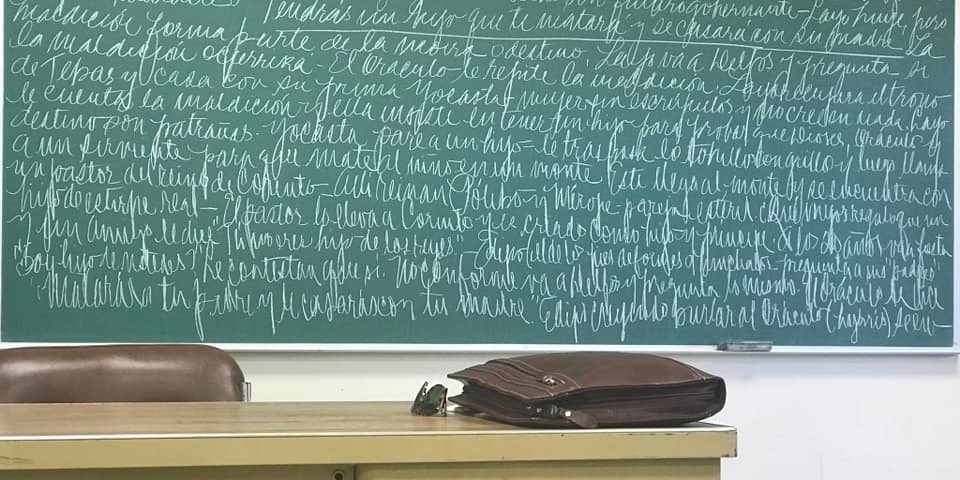 futuro gobernante - Layo huye, pero
Tendrás un hijo que te matará y se casará con su madre La
maldición forma parte de la moira o destino. Layo va a Delfos y pregunta si
la maldición es - El Oráculo le repite la maldición. Layo el trono
de Tebas y casa con su prima Yocasta - mujer sin escrúpulos y no cree en nada. Layo
le cuenta la maldición y ella insiste en tener un hijo para probar que Dioses, Oráculo y
destino son patrañas. Yocasta pare a un hijo - le traspasa los tobillos con grillo y luego llama
a un sirviente para que mate al niño en un monte. Este llega al monte y se encuentra con
un pastor del reino de Corinto - Allí reinan Pólibo y Mérope - pareja estéril
hijo de estirpe real - El pastor lo lleva a Corinto y es criado como hijo y príncipe. A los años, va a fiesta
y un amigo le dice "Tú no eres hijo de los reyes" Edipo (el de los pies deformes o hinchados - pregunta a sus padres
"Soy hijo de ustedes? Le contestan que sí. No conforme va a Delfos y pregunta lo mismo. El Oráculo le dice
"Matarás a tu padre y te casarás con tu madre" Edipo creyendo burlar al Oráculo (hybris), se